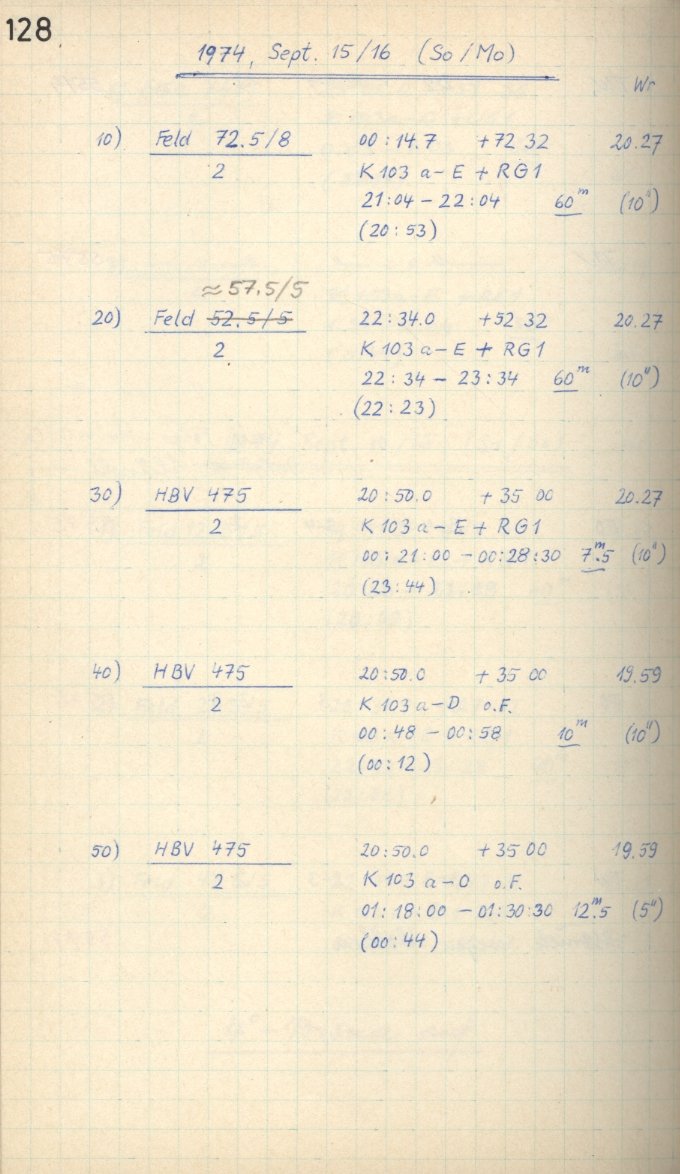 128
1974, Sept. 15/16 (So/Mo)
Wr
10) Feld 72.5/8 00:14.7 +72 32 20.27
2 K 103 a-E + RG1
21:04 - 22:04 60ᵐ (10")
(20:53)
≈57.5/5
20) Feld 52.5/5 22:34.0 +52 32 20.27
2 K 103 a-E + RG1
22:34 - 23:34 60ᵐ (10")
(22:23)
30) HBV 475 20:50.0 +35 00 20.27
2 K 103 a-E + RG1
00:21:00 - 00:28:30 7ᵐ.5 (10")
(23:44)
40) HBV 475 20:50.0 +35 00 19.59
2 K 103 a-D o.F.
00:48 - 00:58 10ᵐ (10")
(00:12)
50) HBV 475 20:50.0 +35 00 19.59
2 K 103 a-O o.F.
01:18:00 - 01:30:30 12ᵐ.5 (5")
(00:44)